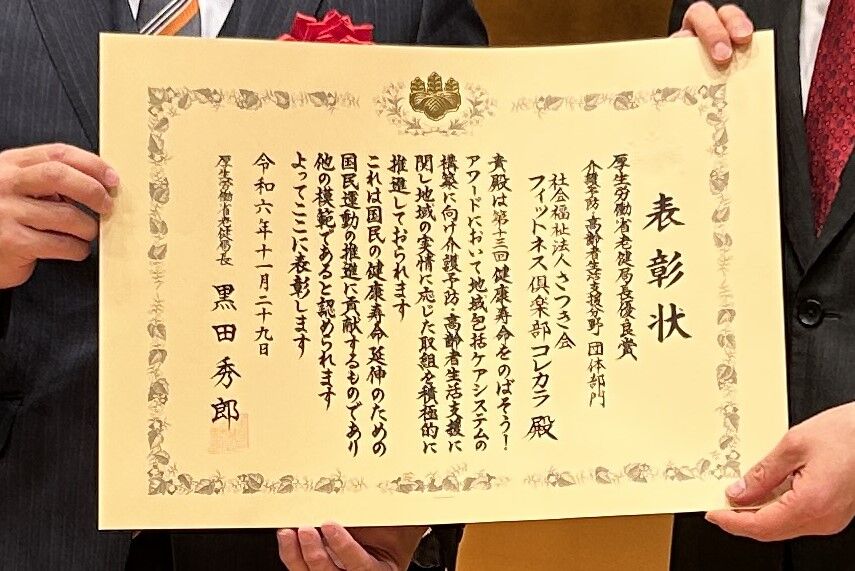 表彰状
厚生労働省老健局長優良賞
介護予防・高齢者生活支援分野 団体部門
社会福祉法人さつき会
フィットネス倶楽部コレカラ 殿
貴殿は第十三回健康寿命をのばそう！
アワードにおいて地域包括ケアシステムの
構築に向け介護予防・高齢者生活支援に
関し地域の実情に応じた取組を積極的に
推進しておられます
これは国民の健康寿命延伸のための
国民運動の推進に貢献するものであり
他の模範であると認められます
よってここに表彰します
令和六年十一月二十九日
厚生労働省老健局長 黒田秀郎